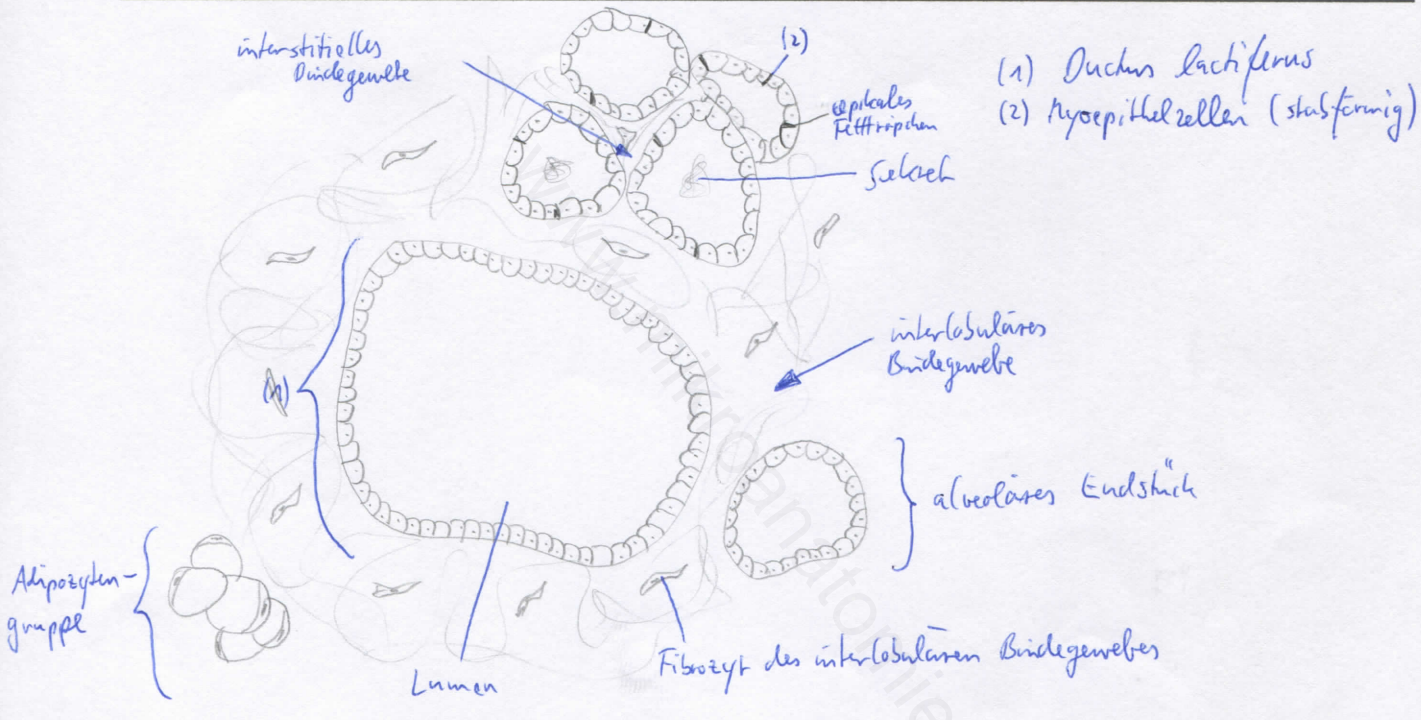 interstitielles
Bindegewebe
(2)
apikales
Fetttröpfchen
Sekret
(1) Ductus lactiferus
(2) Myoepithelzellen (stabförmig)
interlobuläres
Bindegewebe
(1)
alveoläres Endstück
Adipozyten-
gruppe
Lumen
Fibrozyt des interlobulären Bindegewebes
www.mikroanatomie